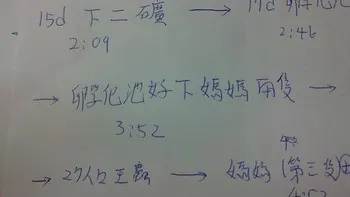 15d 下二礦 → 17d 孵化池
2:09 2:46
→ 孵化池好下媽媽兩隻 →
3:52
→ 27人王蟲 → 媽媽(第三隻)
4:52